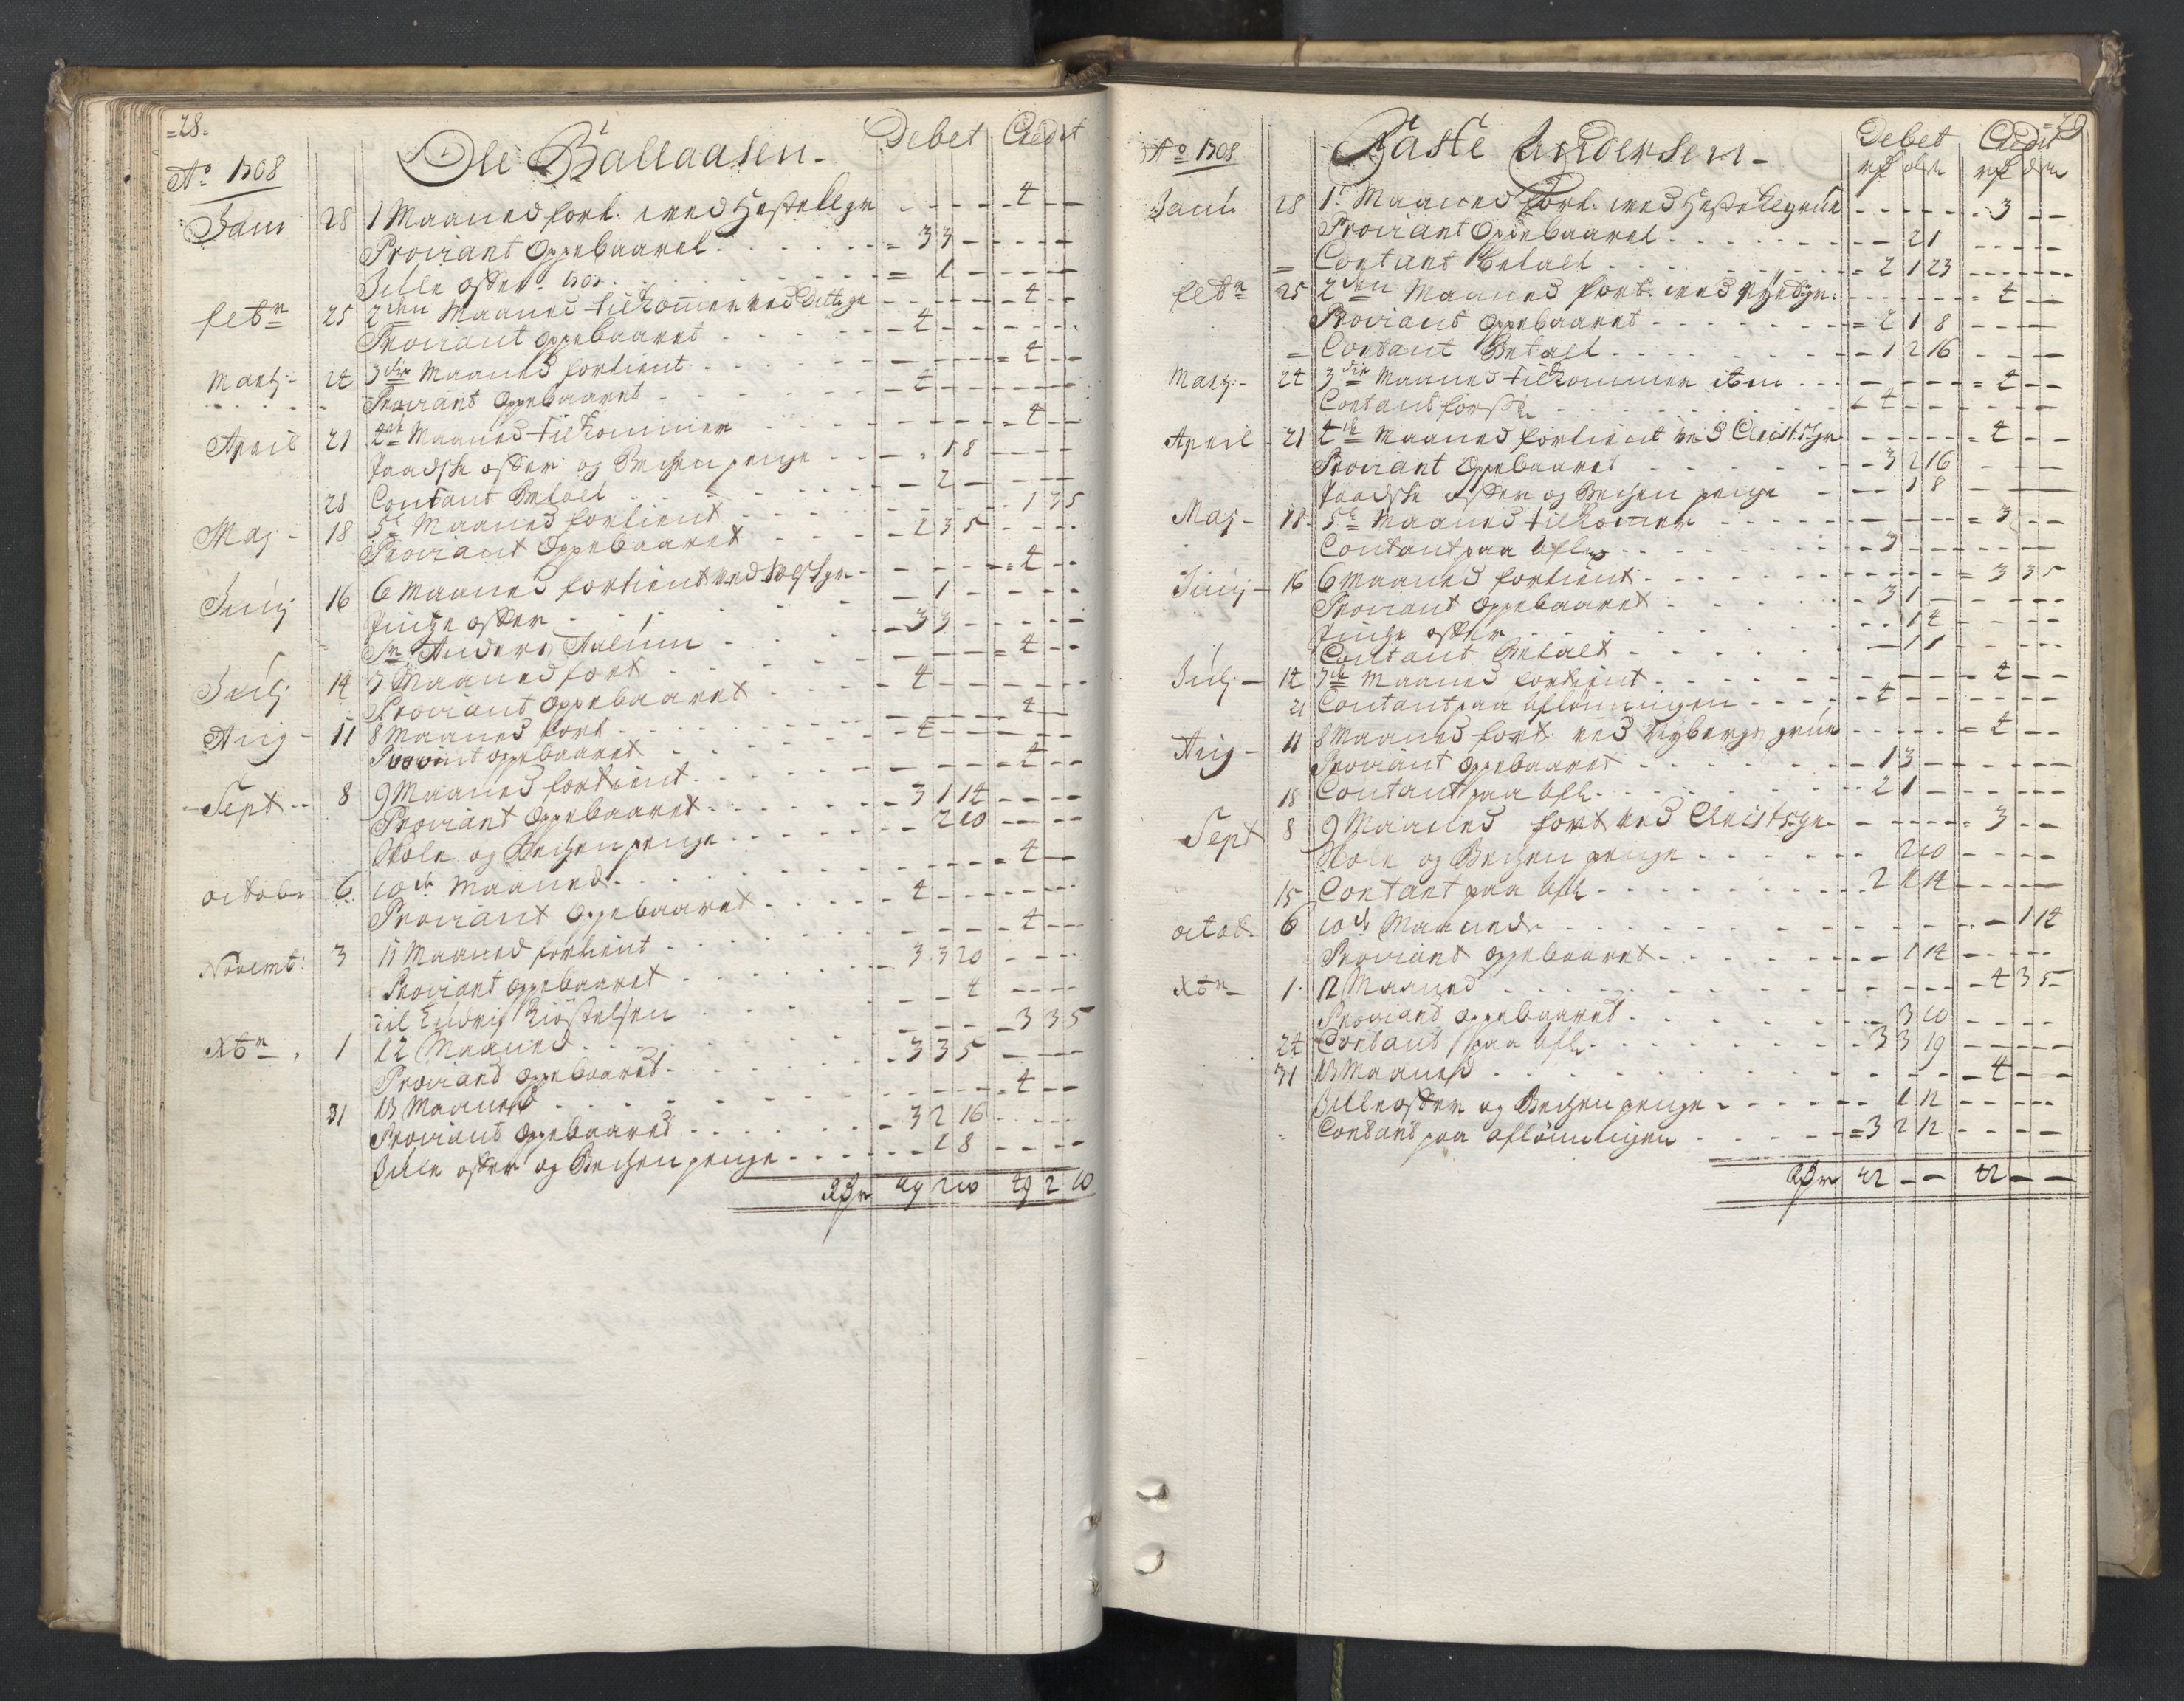 =28=
Ao 1708 Ole Ballaasen - Debet Credit
Janu 28 1 Maaned fort. ved Hestekl gr - - - - - 4 - -
Proviant Oppebaaret - - = 3 3 - - - - -
Bille ofter - = 1 - - - - -
febr 25 2den Maaned tilkommer ved - - - - - 4 - -
Proviant oppebaaret - - - 4 - - - - - -
Martj - 24 3die Maaned fortient - - - - - = 4 - -
Proviant Oppebaaret - - - 4 - - - - - -
April 21 4de Maaned tilkommer - - - - - = 4 - -
faadske ofter og Becken penge - - - - 1 8 - - -
28 Contant Betalt - - - 2 - - - -
Maj - 18 5te Maaned fortient - - - - - 1 3 5
Proviant Oppebaaret - - - 2 3 5 - - -
Junij 16 6 Maaned fortient ved gr - - - - - = 4 - -
Pintze ofter - - - 1 - - - -
Sr Anders - - - 3 3 - - - -
Julj 14 7 Maaned fort - - - - = 4 - -
Proviant oppebaaret - - - 4 - - - - -
Aug - 11 8 Maaned fort - - - - - 4 - -
Proviant oppebaaret - - - 4 - - - - -
Sept - 8 9 Maaned fortient - - - - - 4 - -
Proviant Oppebaaret - - - 3 1 14 - - -
Skole og Becken penge - - - 2 10 - - -
octobr 6 10de Maaned - - - - - = 4 - -
Proviant Oppebaaret - - - 4 - - - - -
Novemb: 3 11 Maaned fortient - - - - - 4 - -
Proviant oppebaaret - - - 3 3 20 - - -
Til Ludvig - - - 4 - - -
Xbr - 1 12 Maaned - - - - - 3 3 5
Proviand oppebaaret - - - 3 3 5 - - -
31 13 Maaned - - - - - = 4 - -
Proviant Oppebaaret - - - 3 2 16 - - -
Bille ofter og Becken penge - - - 1 8 - - -
Rdr 49 2 10 49 2 10
=29
Ao 1708 Baste Andersen - Debet Credit
Janu. 28 1t Maaned fort. ved Hestekl grue - - - - - 3 - -
Proviant Oppebaaret - - - - 2 1 - - -
= Contant Betalt - - = 2 1 23 - - -
febr 25 2den Maaned fort. ved Nye gr. - - - - - 4 - -
Proviant Oppebaaret - - = 2 1 8 - - -
= Contant Betalt - - - 1 2 16 - - -
Martj - 24 3die Maaned tilkommer item - - - - - = 4 - -
Contant - - 4 - - - - -
April - 21 4de Maaned fortient ved Christ: gr - - - - - = 4 - -
Proviant Oppebaaret - - - 3 2 16 - - -
faadske ofter og Becken penge - - - 1 8 - - -
Maj - 18 5te Maaned tilkommer - - - - - = 3 - -
Contant paa Afl - - - 3 - - - - -
Junij - 16 6 Maaned fortient - - - - - = 3 3 5
Proviant Oppebaaret - - - 3 1 - - - -
Pintze ofter - - - 1 4 - - -
Contant Betalt - - - 1 1 - - -
Julj - 14 7de Maaned fortient - - - - - 4 - -
21 Contant paa Aflønningen - - - 4 - - - - -
Aug - 11 8 Maaned fort ved Nybergs grue - - - - = 4 - -
Proviant Oppebaaret - - - 1 3 - - - -
18 Contant paa Afl. - - - 2 1 - - - -
Sept 8 9 Maaned fort ved Christ: gr - - - - - 3 - -
Skole og Becken penge - - - 2 10 - - -
15 Contant paa Afl - - - 2 1 14 - - -
octob. 6 10de Maaned - - - - - 1 14
Proviant oppebaaret - - - 1 14 - - -
Xbr - 1 12 Maaned - - - - - 4 3 5
Proviand oppebaaret - - - 3 10 - - -
24 Contant paa Afl. - - - 3 3 19 - - -
31 13 Maaned - - - - - 4 - -
Bille ofter og Becken penge - - - 1 12 - - -
Contant paa aflønningen - - = 3 2 12 - - -
Rdr 42 - - 42 - -